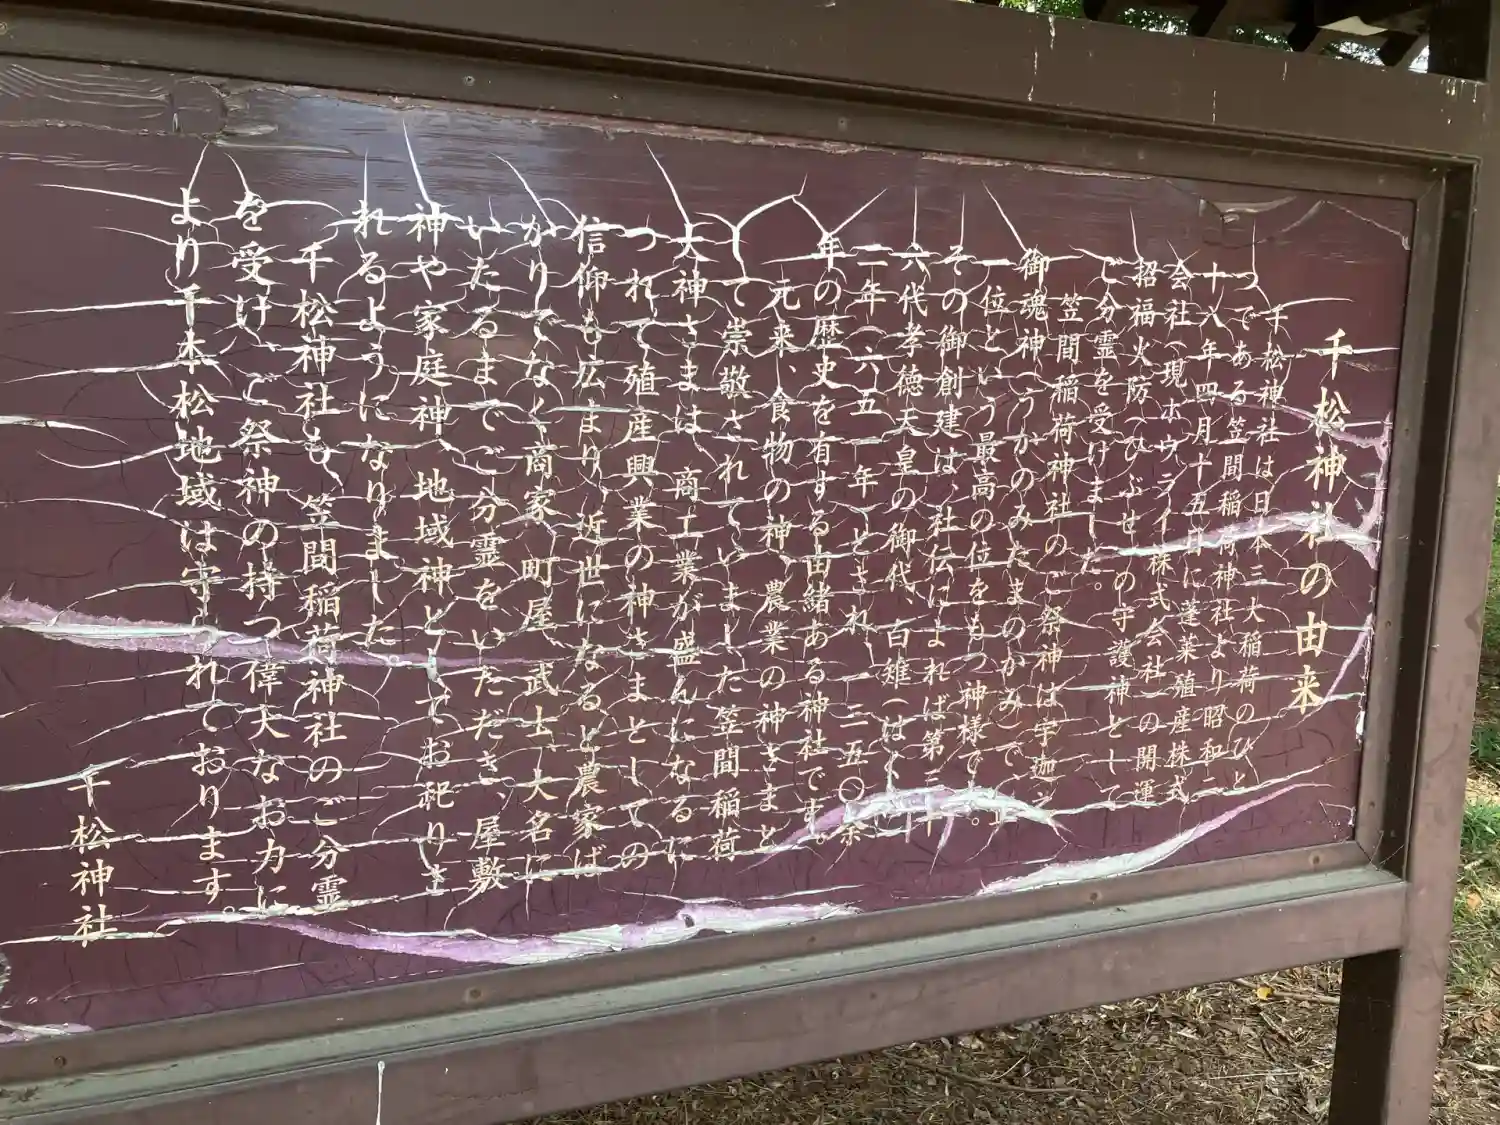 千松神社の由来
千松神社は日本三大稲荷のひと
つである笠間稲荷神社より昭和二
十八年四月十五日に蓬莱殖産株式
会社(現ホウライ株式会社)の開運
招福火防(ひぶせ)の守護神として
ご分霊を受けました。
笠間稲荷神社のご祭神は宇迦之
御魂神(うかのみたまのかみ)で、
一位という最高の位をもつ神様です。
その御創建は、社伝によれば第三十
六代孝徳天皇の御代、白雉(はくち)
二年(六五一年)とされ、一三五〇余
年の歴史を有する由緒ある神社です。
元来、食物の神、農業の神さまと
して崇敬されていました笠間稲荷
大神さまは、商工業が盛んになるに
つれて殖産興業の神さまとしての
信仰も広まり、近世になると農家ば
かりでなく商家、町屋、武士、大名に
いたるまでご分霊をいただき、屋敷
神や家庭神、地域神としてお祀りさ
れるようになりました。
千松神社も、笠間稲荷神社のご分霊
を受け、ご祭神の持つ偉大なお力に
より千本松地域は守られております。
千松神社